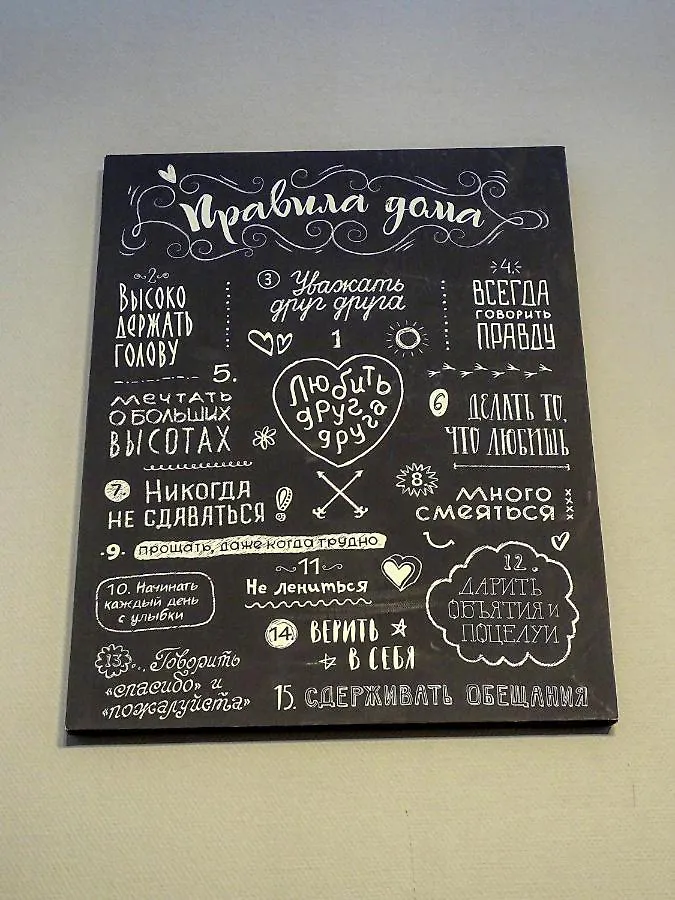 Правила дома
2
Высоко
держать
голову
3 Уважать
друг друга
4.
ВСЕГДА
ГОВОРИТЬ
ПРАВДУ
1
Любить
друг
друга
5.
мечтать
о больших
высотах
6 ДЕЛАТЬ ТО,
ЧТО ЛЮБИШЬ
7. Никогда
не сдаваться!
8. много
смеяться
9. прощать, даже когда трудно
10. Начинать
каждый день
с улыбки
11
Не лениться
12.
ДАРИТЬ
ОБЪЯТИЯ И
ПОЦЕЛУИ
13... Говорить
«спасибо» и
«пожалуйста»
14. ВЕРИТЬ
В СЕБЯ
15. СДЕРЖИВАТЬ ОБЕЩАНИЯ